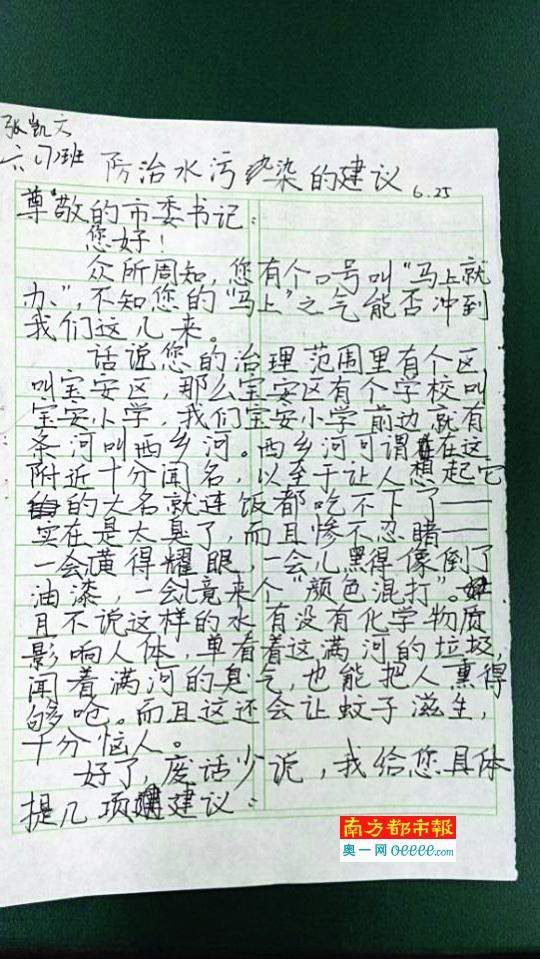 张凯六
六(7)班
防治水污染的建议
6.25
尊敬的市委书记:
您好!
众所周知,您有个口号叫“马上就
办”,不知您的“马上”之气能否冲到
我们这儿来。
话说您的治理范围里有个区
叫宝安区,那么宝安区有个学校叫
宝安小学,我们宝安小学前边就有
条河叫西乡河。西乡河可谓在这
附近十分闻名,以至于让人想起它
的大名就连饭都吃不下了——
实在是太臭了,而且惨不忍睹——
一会黄得耀眼,一会儿黑得像倒了
油漆,一会儿竟来个“颜色混打”。
且不说这样的水有没有化学物质
影响人体,单看着这满河的垃圾,
闻着满河的臭气,也能把人熏得
够呛。而且这还会让蚊子滋生,
十分恼人。
好了,废话少说,我给您具体
提几项建议:
南方都市報
奥一网 oeeee.com